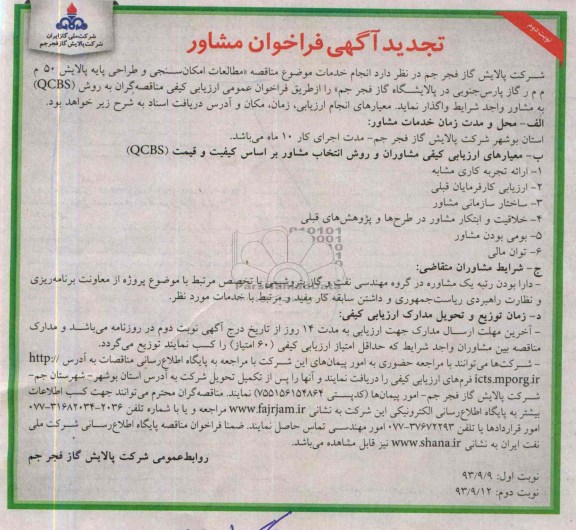 نوبت دوم
شرکت ملی گاز ایران
شرکت پالایش گاز فجر جم
تجدید آگهی فراخوان مشاور
شرکت پالایش گاز فجر جم در نظر دارد انجام خدمات موضوع مناقصه «مطالعات امکان‌سنجی و طراحی پایه پالایش ۵۰ م
م م ر گاز پارس‌جنوبی در پالایشگاه گاز فجر جم» را ازطریق فراخوان عمومی ارزیابی کیفی مناقصه‌گران به روش (QCBS)
به مشاور واجد شرایط واگذار نماید. معیارهای انجام ارزیابی، زمان، مکان و آدرس دریافت اسناد به شرح زیر خواهد بود.
الف- محل و مدت زمان خدمات مشاور:
استان بوشهر شرکت پالایش گاز فجر جم- مدت اجرای کار ۱۰ ماه می‌باشد.
ب- معیارهای ارزیابی کیفی مشاوران و روش انتخاب مشاور بر اساس کیفیت و قیمت (QCBS)
۱- ارائه تجربه کاری مشابه
۲- ارزیابی کارفرمایان قبلی
۳- ساختار سازمانی مشاور
۴- خلاقیت و ابتکار مشاور در طرح‌ها و پژوهش‌های قبلی
۵- بومی بودن مشاور
۶- توان مالی
ج - شرایط مشاوران متقاضی:
- دارا بودن رتبه یک مشاوره در گروه مهندسی نفت و گاز پتروشیمی با تخصص مرتبط با موضوع پروژه از معاونت برنامه‌ریزی
و نظارت راهبردی ریاست‌جمهوری و داشتن سابقه کار مفید و مرتبط با خدمات مورد نظر.
د- زمان توزیع و تحویل مدارک ارزیابی کیفی:
- آخرین مهلت ارسال مدارک جهت ارزیابی به مدت ۱۴ روز از تاریخ درج آگهی نوبت دوم در روزنامه می‌باشد و مدارک
مناقصه بین مشاوران واجد شرایط که حداقل امتیاز ارزیابی کیفی (۶۰ امتیاز) را کسب نمایند توزیع می‌گردد.
- شرکت‌ها می‌توانند با مراجعه حضوری به امور پیمان‌های این شرکت با مراجعه به پایگاه اطلاع‌رسانی مناقصات به آدرس http://
icts.mporg.ir فرم‌های ارزیابی کیفی را دریافت نمایند و آنها را پس از تکمیل تحویل شرکت به آدرس استان بوشهر- شهرستان جم-
شرکت پالایش گاز فجر جم- امور پیمان‌ها (کدپستی ۷۵۵۱۵۶۱۵۴۸۶۴) نمایند. مناقصه‌گران محترم می‌توانند جهت کسب اطلاعات
بیشتر به پایگاه اطلاع‌رسانی الکترونیکی این شرکت به نشانی www.fajrjam.ir مراجعه و یا با شماره تلفن ۲۰۳۶-۳۱۶۸۲۰۳۴-۰۷۷
امور قراردادها یا تلفن ۳۷۶۷۲۲۹۳-۰۷۷ امور مهندسی تماس حاصل نمایند. ضمنا فراخوان مناقصه پایگاه اطلاع‌رسانی شرکت ملی
نفت ایران به نشانی www.shana.ir نیز قابل مشاهده می‌باشد.
روابط‌عمومی شرکت پالایش گاز فجر جم
نوبت اول: ۹۳/۹/۹
نوبت دوم: ۹۳/۹/۱۲